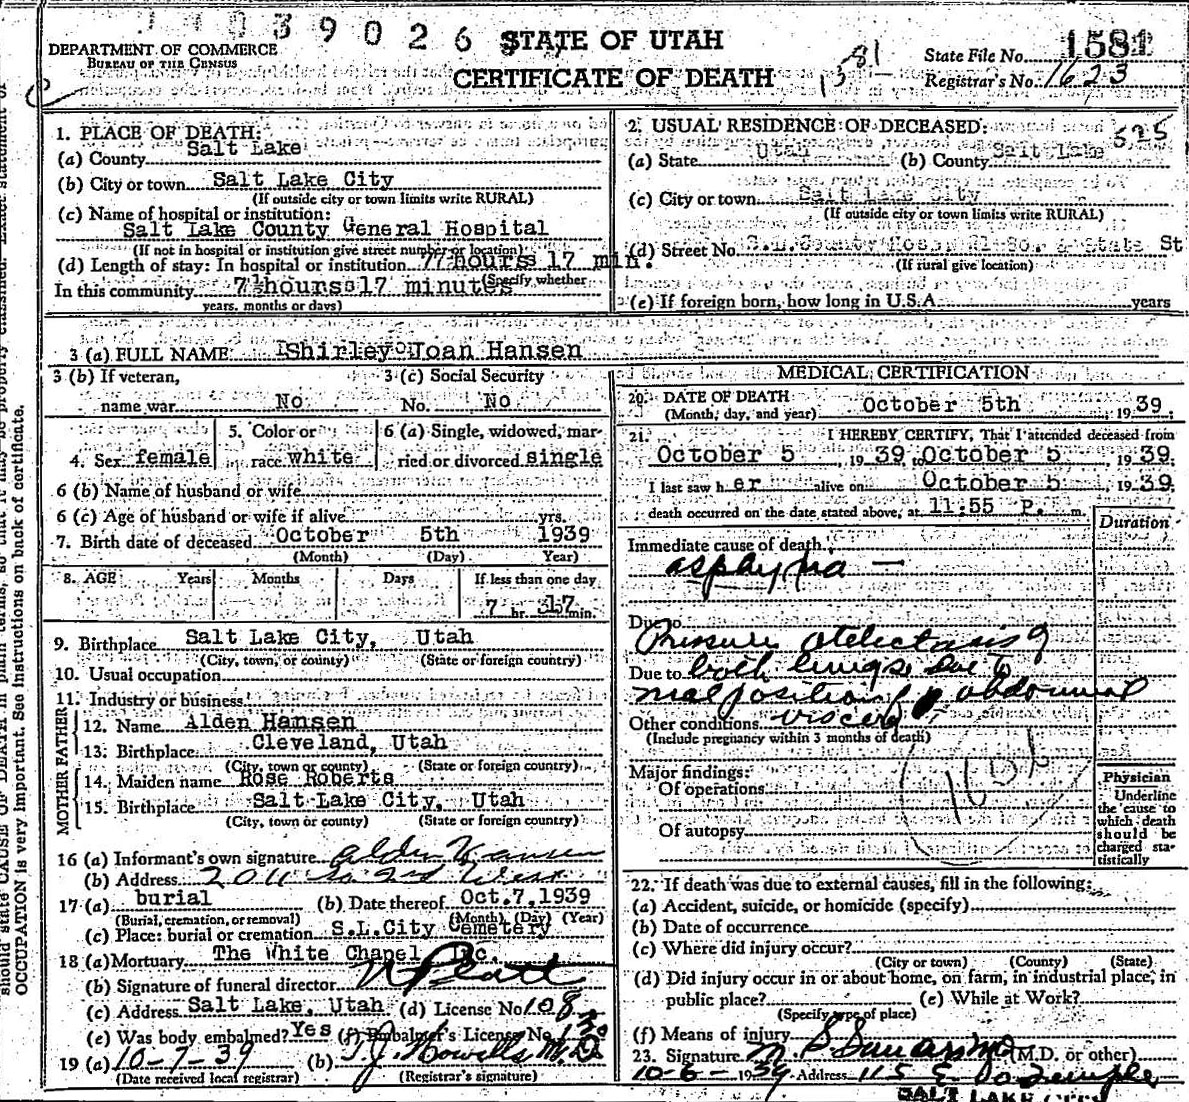 39026
STATE OF UTAH
CERTIFICATE OF DEATH
DEPARTMENT OF COMMERCE
BUREAU OF THE CENSUS
State File No. 1581
Registrar's No. 1623
1. PLACE OF DEATH:
(a) County Salt Lake
(b) City or town Salt Lake City
(If outside city or town limits write RURAL)
(c) Name of hospital or institution:
Salt Lake County General Hospital
(If not in hospital or institution give street number or location)
(d) Length of stay: In hospital or institution 7 hours 17 min.
(Specify whether
In this community 7 hours 17 minutes
years, months or days)
2. USUAL RESIDENCE OF DECEASED: 525
(a) State Utah (b) County Salt Lake
(c) City or town Salt Lake City
(If outside city or town limits write RURAL)
(d) Street No. S.L. County Hospital So. & State St
(If rural give location)
(e) If foreign born, how long in U.S.A. years
3 (a) FULL NAME Shirley Joan Hansen
3 (b) If veteran, name war No
3 (c) Social Security No. No
4. Sex female
5. Color or race white
6 (a) Single, widowed, married or divorced single
6 (b) Name of husband or wife
6 (c) Age of husband or wife if alive yrs.
7. Birth date of deceased October 5th 1939
(Month) (Day) Year)
8. AGE Years Months Days If less than one day
7 hr. 17 min.
9. Birthplace Salt Lake City, Utah
(City, town, or county) (State or foreign country)
10. Usual occupation
11. Industry or business
FATHER
12. Name Alden Hansen
13. Birthplace Cleveland, Utah
(City, town or county) (State or foreign country)
MOTHER
14. Maiden name Rose Roberts
15. Birthplace Salt Lake City, Utah
(City, town or county) (State or foreign country)
16 (a) Informant's own signature Alden Hansen
(b) Address 2011 So 2nd West
17 (a) burial (b) Date thereof Oct.7,1939
(Burial, cremation, or removal) (Month) (Day) (Year)
(c) Place: burial or cremation S.L.City Cemetery
18 (a) Mortuary The White Chapel Inc.
(b) Signature of funeral director
(c) Address Salt Lake, Utah (d) License No. 108
(e) Was body embalmed? Yes (f) Embalmer's License No.
19 (a) 10-7-39 (b) T.J. Howells M.D.
(Date received local registrar) (Registrar's signature)
MEDICAL CERTIFICATION
20. DATE OF DEATH
(Month, day, and year) October 5th, 1939
21. I HEREBY CERTIFY, That I attended deceased from
October 5, 1939, to October 5, 1939.
I last saw her alive on October 5, 1939.
death occurred on the date stated above, at 11:55 P. m.
Duration
Immediate cause of death
asphyxia —
Due to
Pressure atelectasis of
Due to both lungs due to
malposition of abdominal
Other conditions viscera
(Include pregnancy within 3 months of death)
Major findings:
Of operations
Of autopsy
Physician
Underline
the cause to
which death
should be
charged sta-
tistically
22. If death was due to external causes, fill in the following:
(a) Accident, suicide, or homicide (specify)
(b) Date of occurrence
(c) Where did injury occur?
(City or town) (County) (State)
(d) Did injury occur in or about home, on farm, in industrial place, in
public place? (e) While at Work?
(Specify type of place)
(f) Means of injury
23. Signature (M.D. or other)
10-6-1939 Address 115 E So Temple
SALT LAKE CITY
should state CAUSE OF DEATH in plain terms, so that it may be properly classified. Exact statement of
OCCUPATION is very important. See instructions on back of certificate.